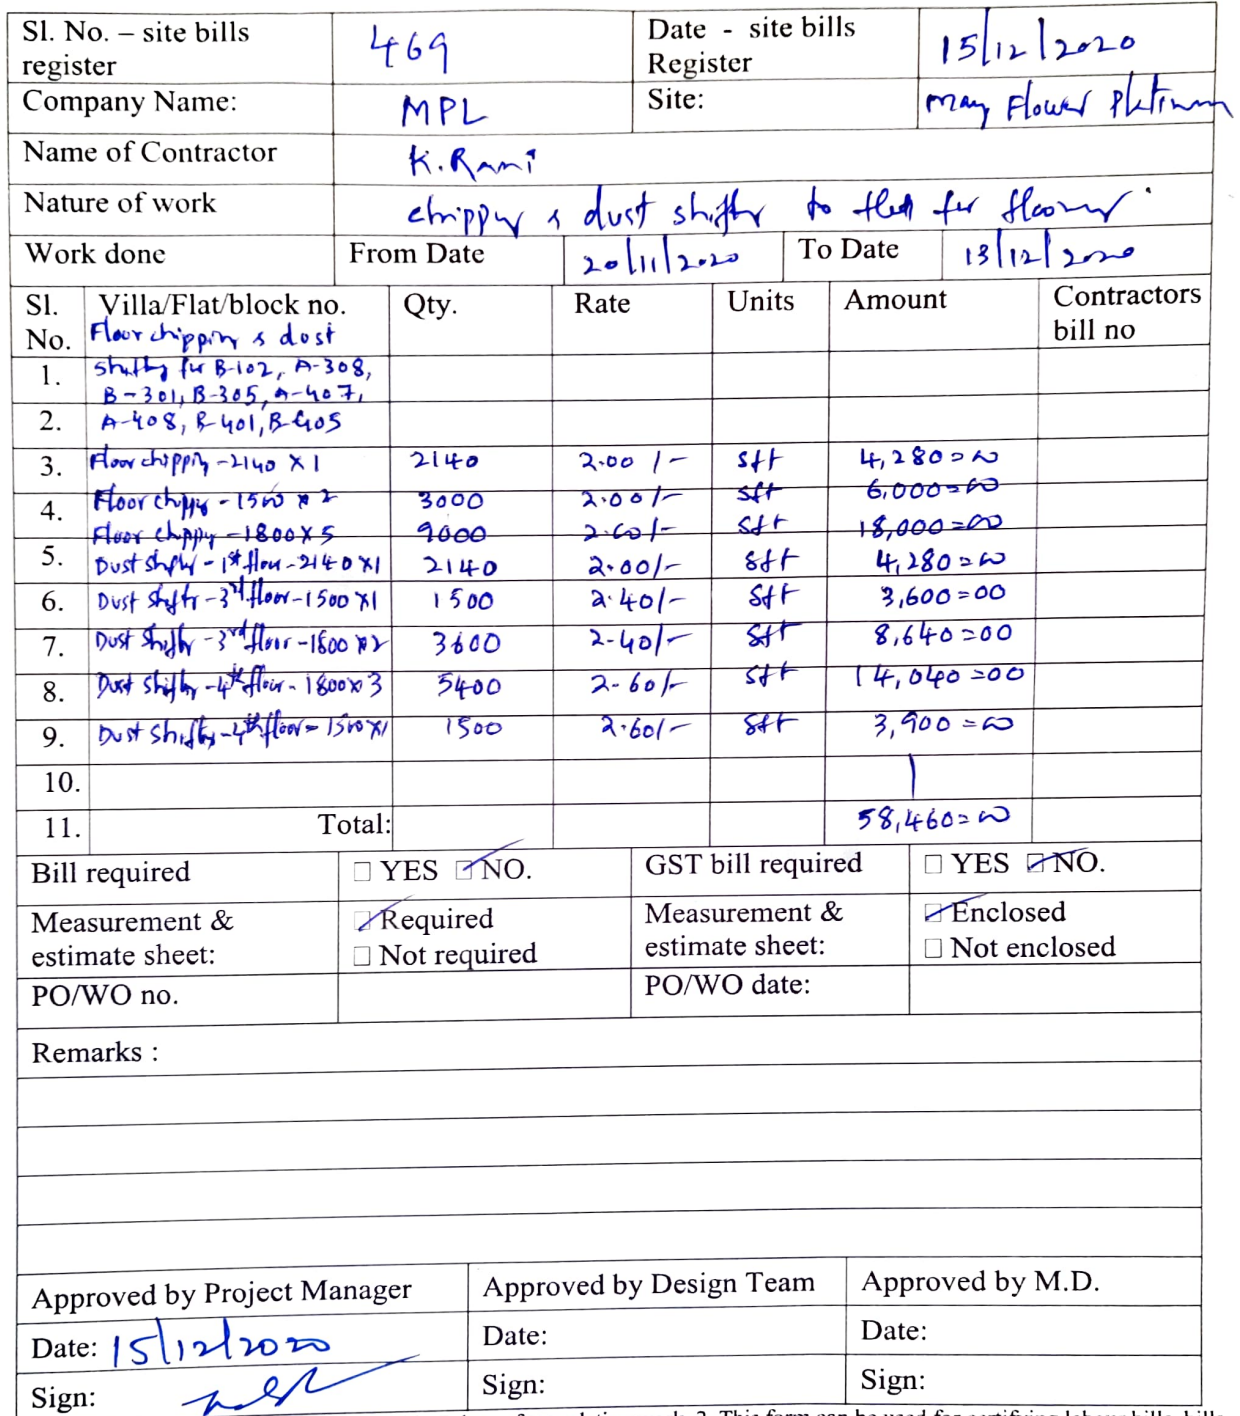 Sl. No. – site bills register 469 Date - site bills Register 15/12/2020
Company Name: MPL Site: May Flower Platinum
Name of Contractor K. Rami
Nature of work chipping & dust shifting to flat for flooring
Work done From Date 20/11/2020 To Date 13/12/2020
Sl. No. Villa/Flat/block no. Qty. Rate Units Amount Contractors bill no
Floor chipping & dust
1. Shifting for B-102, A-308,
B-301, B-305, A-407,
2. A-408, B-401, B-405
3. Floor chipping - 2140 x 1 2140 2.00/- sft 4,280=00
4. Floor chipping - 1500 x 2 3000 2.00/- sft 6,000=00
Floor chipping - 1800 x 5 9000 2.00/- sft 18,000=00
5. Dust shifting - 1st floor - 2140 x 1 2140 2.00/- sft 4,280=00
6. Dust shifting - 3rd floor - 1500 x 1 1500 2.40/- sft 3,600=00
7. Dust shifting - 3rd floor - 1800 x 2 3600 2.40/- sft 8,640=00
8. Dust shifting - 4th floor - 1800 x 3 5400 2.60/- sft 14,040=00
9. Dust shifting - 4th floor - 1500 x 1 1500 2.60/- sft 3,900=00
10.
11. Total: 58,460=00
Bill required □ YES □ NO. GST bill required □ YES □ NO.
Measurement & estimate sheet: □ Required □ Not required Measurement & estimate sheet: □ Enclosed □ Not enclosed
PO/WO no. PO/WO date:
Remarks :
Approved by Project Manager Approved by Design Team Approved by M.D.
Date: 15/12/2020 Date: Date:
Sign: Sign: Sign:
This form can be used for certifying labour bills, bills